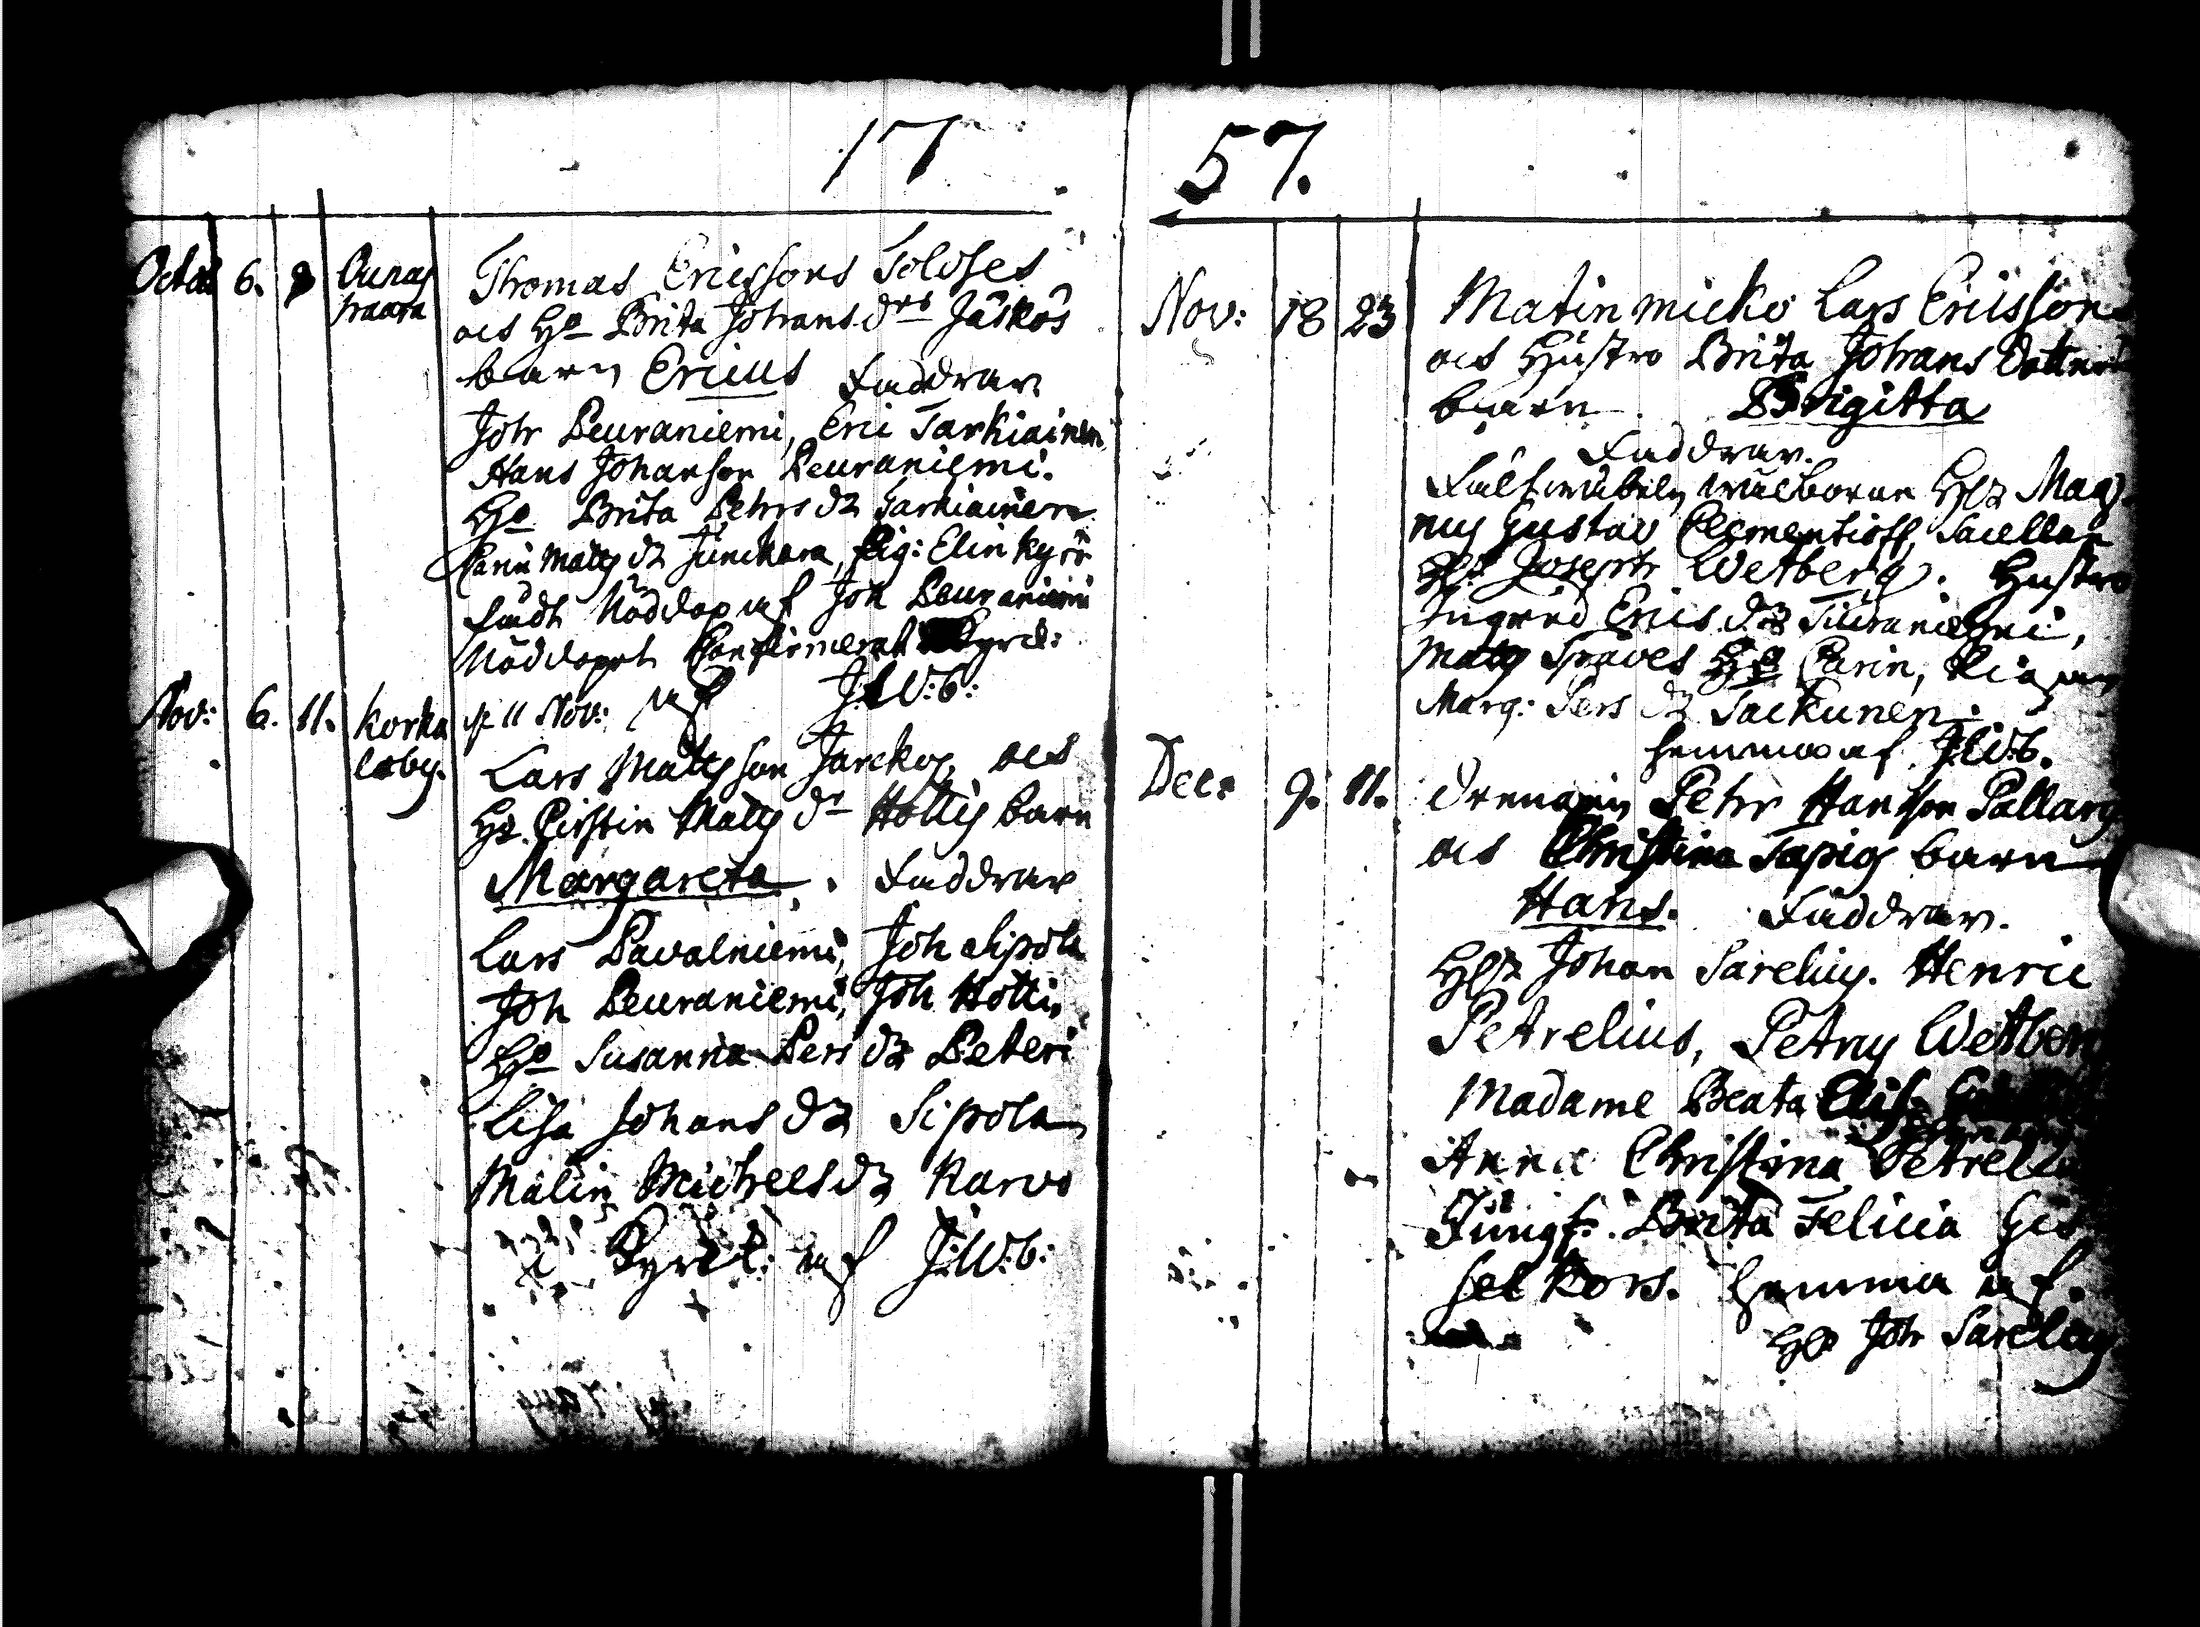 17
Octob 6. 8 Ounas
vaara
Thomas Ericssons Toloses
ocs Ho Brita Johans drs Jäskös
barn Ericus Faddrar
Joh Peuraniemi, Eric Tarkiainen
Hans Johanson Peuraniemi.
Ho Brita Pehrs dr Tarkiainen
Carin Matts dr Junckara, Pig: Elin Kyrö
Nöddop af Joh Peuraniemi
Nöddopet Confirmerat Kyrck:
Nov: 6. 11. Korka
laby.
d 11 Nov: af J:W:b:
Lars Mattsson ocs
Ho Kirstin Matts dr Hottis barn
Margareta. Faddrar
Lars Pavalniemi, Joh Sipola
Joh Peuraniemi, Joh Hotti,
Ho Susanna Pers dr Peteri
Lisa Johans dr Sipola
Malin Michels dr Karvo
i Kyrck: af J:W:b:
57.
Nov: 18 23
Matin micko Lars Ericsson
ocs Hustro Brita Johans Dotters
barn. Brigitta
Faddrar.
Fältwäbeln wälborne Hr Mag
nus Gustav Clementioff, Sacellan
Hr Joseph Wetberg. Hustro
Ingrid Erics dr
Matts Ho Carin, Pigan
Marg: Pers dr Sackunen.
hemma af J:W:b.
Dec: 9. 11.
Petr Hansson Pallarg
ocs Christina Tapig barn
Hans. Faddrar.
Hr Johan Sarelius. Henric
Petrelius, Petrus Wetber
Madame Beata Elis.
Anna Christina Petreli
Jungf: Brita Felicia Gis
selkors. hemma af.
Hr Joh Sarelius